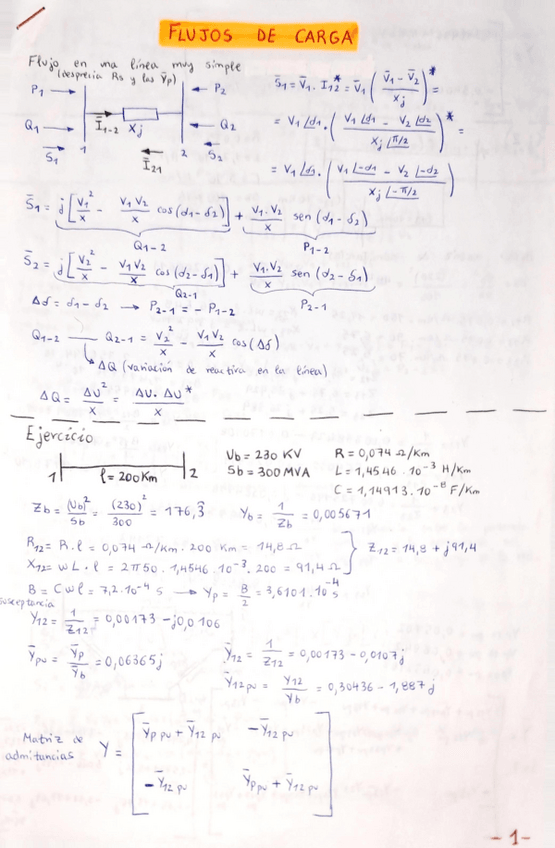 FLUJOS DE CARGA
Flujo en una línea muy simple
(desprecia Rs y las Ȳp)
P1 → ← P2
Q1 → ← Q2
S̄1 1 Ī1-2 Xj Ī21 2 S̄2
S̄1 = V̄1 · I12* = V̄1 ( (V̄1 - V̄2) / Xj )* =
= V1 ∠δ1 · ( (V1 ∠δ1 - V2 ∠δ2) / (Xj ∠π/2) )* =
= V1 ∠δ1 · ( (V1 ∠-δ1 - V2 ∠-δ2) / (Xj ∠-π/2) )
S̄1 = j [ V1²/x - V1V2/x cos(δ1-δ2) ] + V1·V2/x sen(δ1-δ2)
Q1-2 P1-2
S̄2 = j [ V2²/x - V1V2/x cos(δ2-δ1) ] + V1·V2/x sen(δ2-δ1)
Q2-1 P2-1
Δδ = δ1-δ2 → P2-1 = - P1-2
Q1-2 — Q2-1 = V2²/x - V1V2/x cos(Δδ)
ΔQ (variación de reactiva en la línea)
ΔQ = ΔU²/x = ΔU·ΔU*/x
Ejercicio
1 l = 200Km 2
Ub = 230 KV
Sb = 300 MVA
R = 0,074 Ω/Km
L = 1,4546 · 10⁻³ H/Km
C = 1,14913 · 10⁻⁸ F/Km
Zb = (Ub)²/Sb = (230)²/300 = 176,3̂ Yb = 1/Zb = 0,005671
R12 = R·l = 0,074 Ω/Km · 200 Km = 14,8 Ω
X12 = ωL·l = 2π50 · 1,4546·10⁻³ · 200 = 91,4 Ω
} Z12 = 14,8 + j91,4
B = Cωl = 7,2·10⁻⁴ s → Yp = B/2 = 3,6101·10⁻⁴ s
susceptancia
Y12 = 1/Z12 = 0,00173 - j0,0106
Ȳpu = Ȳp/Ȳb = 0,06365j
Ȳ12 = 1/Z12 = 0,00173 - 0,0107j
Ȳ12pu = Y12/Yb = 0,30436 - 1,887j
Matriz de
admitancias Y =
[ Ȳp pu + Ȳ12 pu -Ȳ12 pu
-Ȳ12 pu Ȳp pu + Ȳ12 pu ]
- 1 -